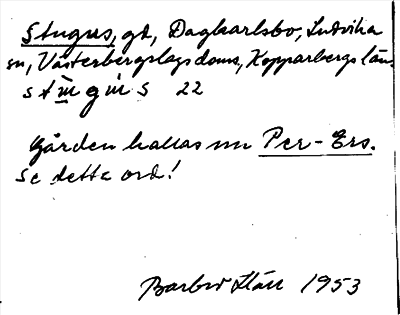 Stugus, gd, Dagkarlsbo, Ludvika
sn, Västerbergslags doms, Kopparbergs län.
stugus 22
Gården kallas nu Per-Ers.
Se detta ord!
Barbro 1953